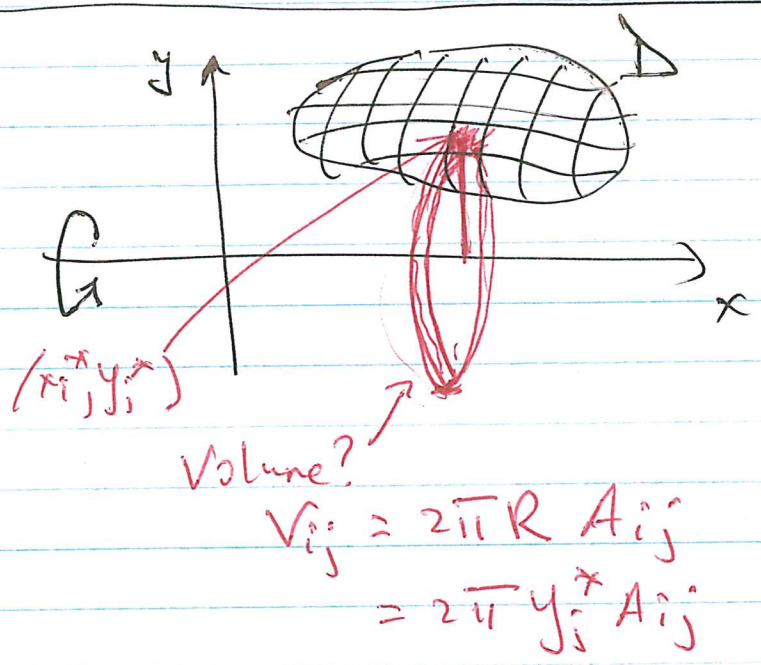 y
D
x
(xᵢ*, yⱼ*)
Volume?
Vᵢⱼ = 2π R Aᵢⱼ
= 2π yⱼ* Aᵢⱼ